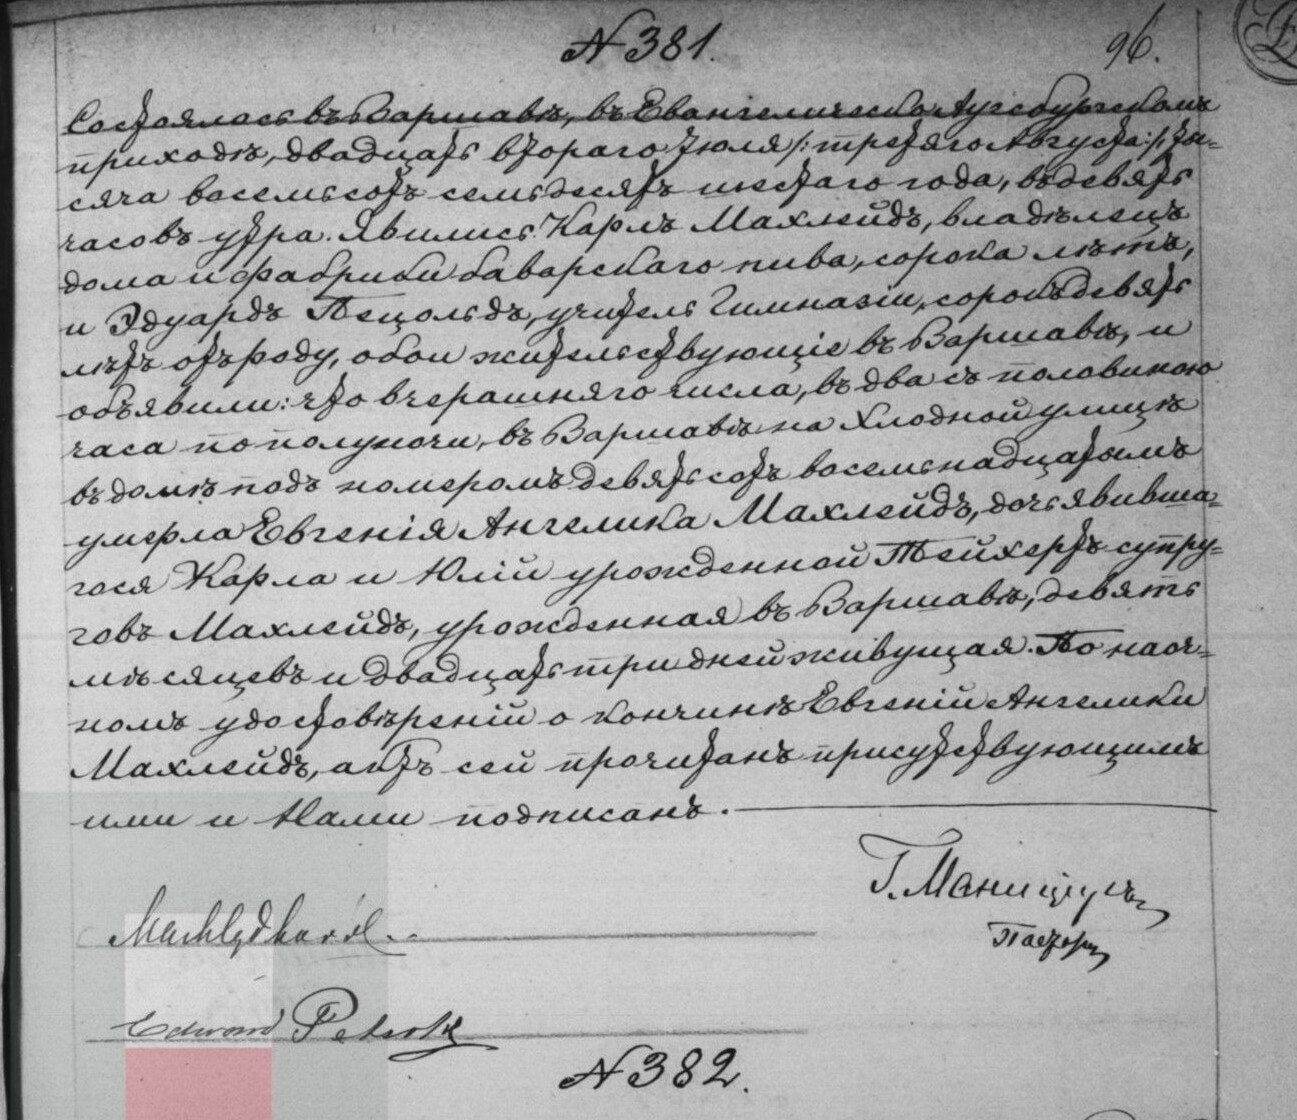 N 381.
96.
Состоялось въ Варшавѣ, въ Евангелическо Аугсбургскомъ
приходѣ, двадцать втораго Іюля /: третяго Августа :/ ты=
сяча восемьсотъ семьдесятъ шестаго года, въ девять
часовъ утра. Явились Карлъ Махлейдъ, владѣлецъ
дома и фабрики баварскаго пива, сорока лѣтъ,
и Эдуардъ Пецольдъ, учитель Гимназіи, сорокъ девять
лѣтъ отъ роду, обои жительствующіе въ Варшавѣ, и
объявили: что вчерашняго числа, въ два съ половиною
часа по полуночи, въ Варшавѣ на Хлодной улицѣ
въ домѣ подъ номеромъ девятьсотъ восемьнадцатымъ
умерла Евгенія Ангелика Махлейдъ, дочь явивша=
гося Карла и Юліи урожденной Тейхертъ супру=
говъ Махлейдъ, урожденная въ Варшавѣ, девять
мѣсяцевъ и двадцать три дней живущая. По наоч=
номъ удостовѣреній о кончинѣ Евгеній Ангелики
Махлейдъ, актъ сей прочитанъ присутствующимъ
ими и Нами подписанъ.
Г. Маниціусъ
Пасторъ
Machlejd Karol
Edward Petzold
N 382.